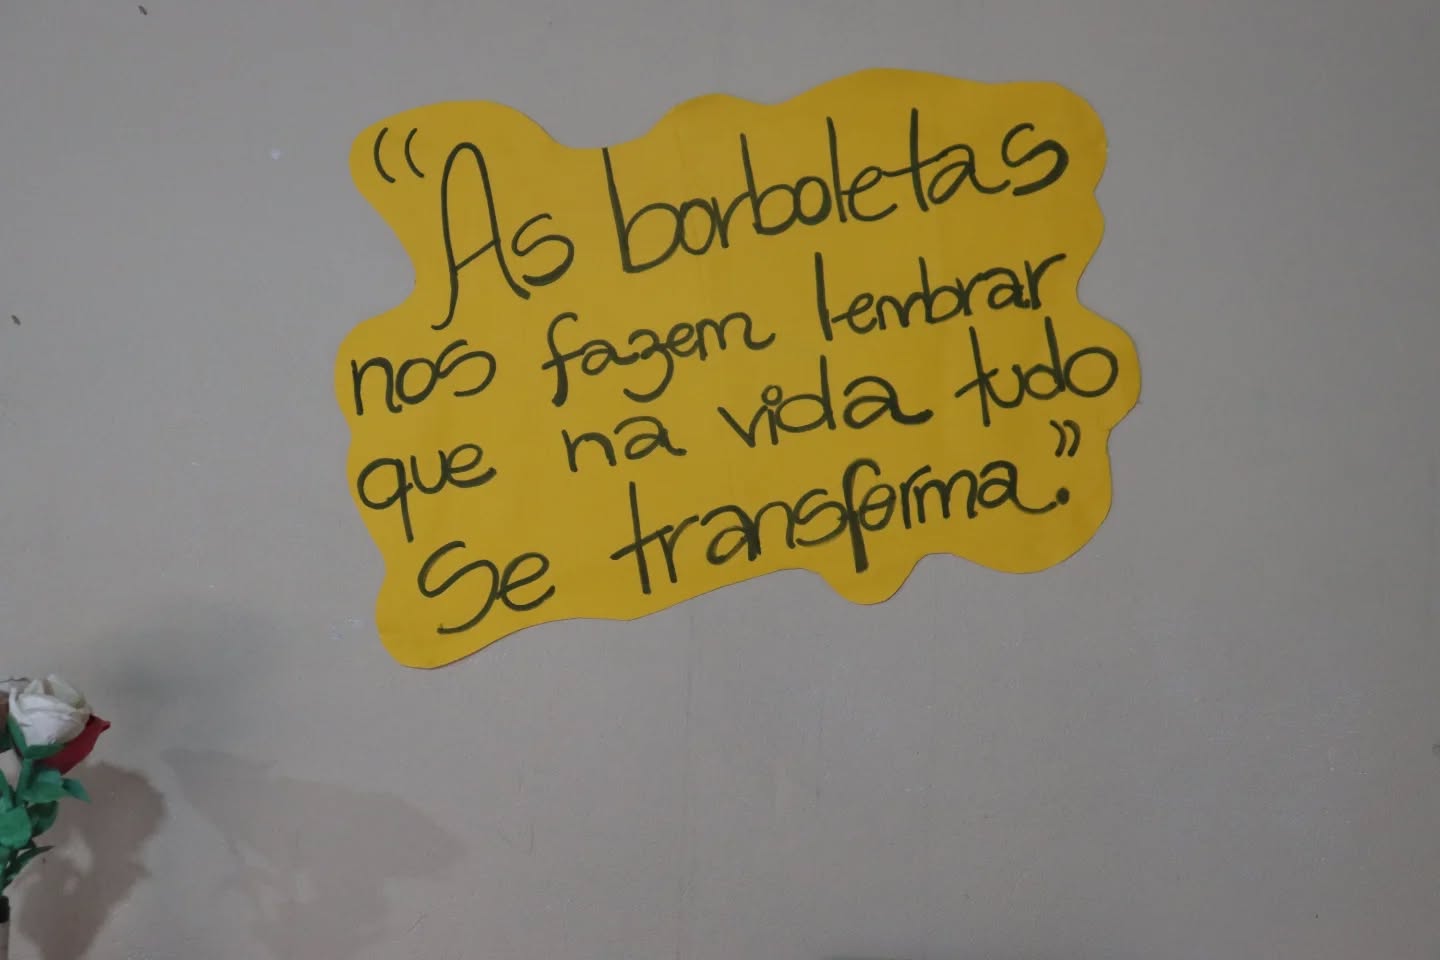 “As borboletas
nos fazem lembrar
que na vida tudo
se transforma.”